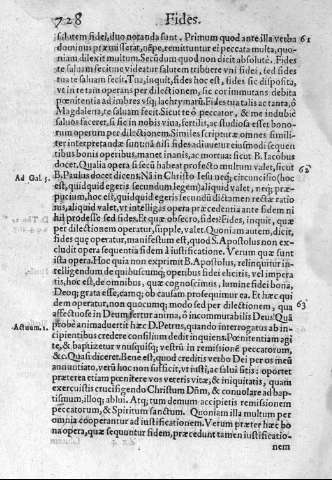 728 Fides.
salutem fidei, duo notanda sunt. Primum quod ante illa verba 61
dominus præmisserat, nēpe, remittuntur ei peccata multa, quo-
niam dilexit multum. Secūdum quod non dicit absolutè. Fides
te saluam fecit: ne videatur salutem tribuere vni fidei, sed fides
tua te saluam fecit. Tua, inquit, fides hoc est, fides sic disposita,
pœnitentia ad imbres vsq; lachrymarū. Fides tua talis ac tanta, ô
Magdalena, te saluam fecit. Sicut te ô peccator, & me
saluos faciet, si sic in nobis viua, fertilis,
norum operum per dilectionem. Similes scripturæ omnes simili-
ter interpretandæ sunt: nā nisi fides adiuuetur eiusmodi sequen-
tibus bonis operibus, manet inanis, ac mortua: sicut B. Iacobus
docet. Qualia opera si secū habeat profecto multum valet, sicut 62
Ad Gal. 5. B. Paulus docet dicens. Nā in Christo Iesu neq; circuncisio (hoc
est, quidquid egeris secundum legem) aliquid valet, neq; præ-
putium, hoc est, quidquid egeris secundū dictamen rectæ ratio-
nis, aliquid valet, vt intelligas opera præcedentia ante fidem ni
hil prodesse sed fides. Et quæ obsecro, fides? Fides, inquit, quæ
per dilectionem operatur, supple, valet. Quoniam autem, dicit,
fides quę operatur, manifestum est, quod S. Apostolus non ex-
cludit opera sequentia fidem à iustificatione. Verum quæ sunt
ista opera. Hoc quia non exprimit B. Apostolus, relinquitur in-
telligendum de quibuscumq; operibus fidei elicitis, vel impera
tis, hoc est, de omnibus, quæ cognoscimus, lumine fidei bona,
Deoq; grata esse, eamq; ob causam prosequimur ea. Et hæc qui
dem operatur, non quocumq; modo sed per dilectionem, qua 63
affectuose in Deum fertur anima, ô incommutabilis Deus! Quā
Actuum. 2. probè animaduertit hæc D. Petrus, quando interrogatus ab in-
cipientibus credere consilium dedit inquiens. Pœnitentiam agi
te, & baptizetur vnusquisq; vestrū in remissionē peccatorum,
&c. Quasi diceret. Bene est, quod creditis verbo Dei per os meū
annuntiato, verū hoc non sufficit, vt iusti, ac salui sitis: oportet
præterea etiam penitere vos veteris vitæ, & iniquitatis, quam
exercuistis crucifigendo Christum Dñm, & conuolare ad bap-
tismum, illoq; ablui. Atq; tum demum accipietis remissionem
peccatorum, & Spiritum sanctum. Quoniam illa multum per
omnia cooperantur ad iustificationem. Verum præter hæc bo
na opera, quæ sequuntur fidem, præcedunt tamen iustificatio-
nem